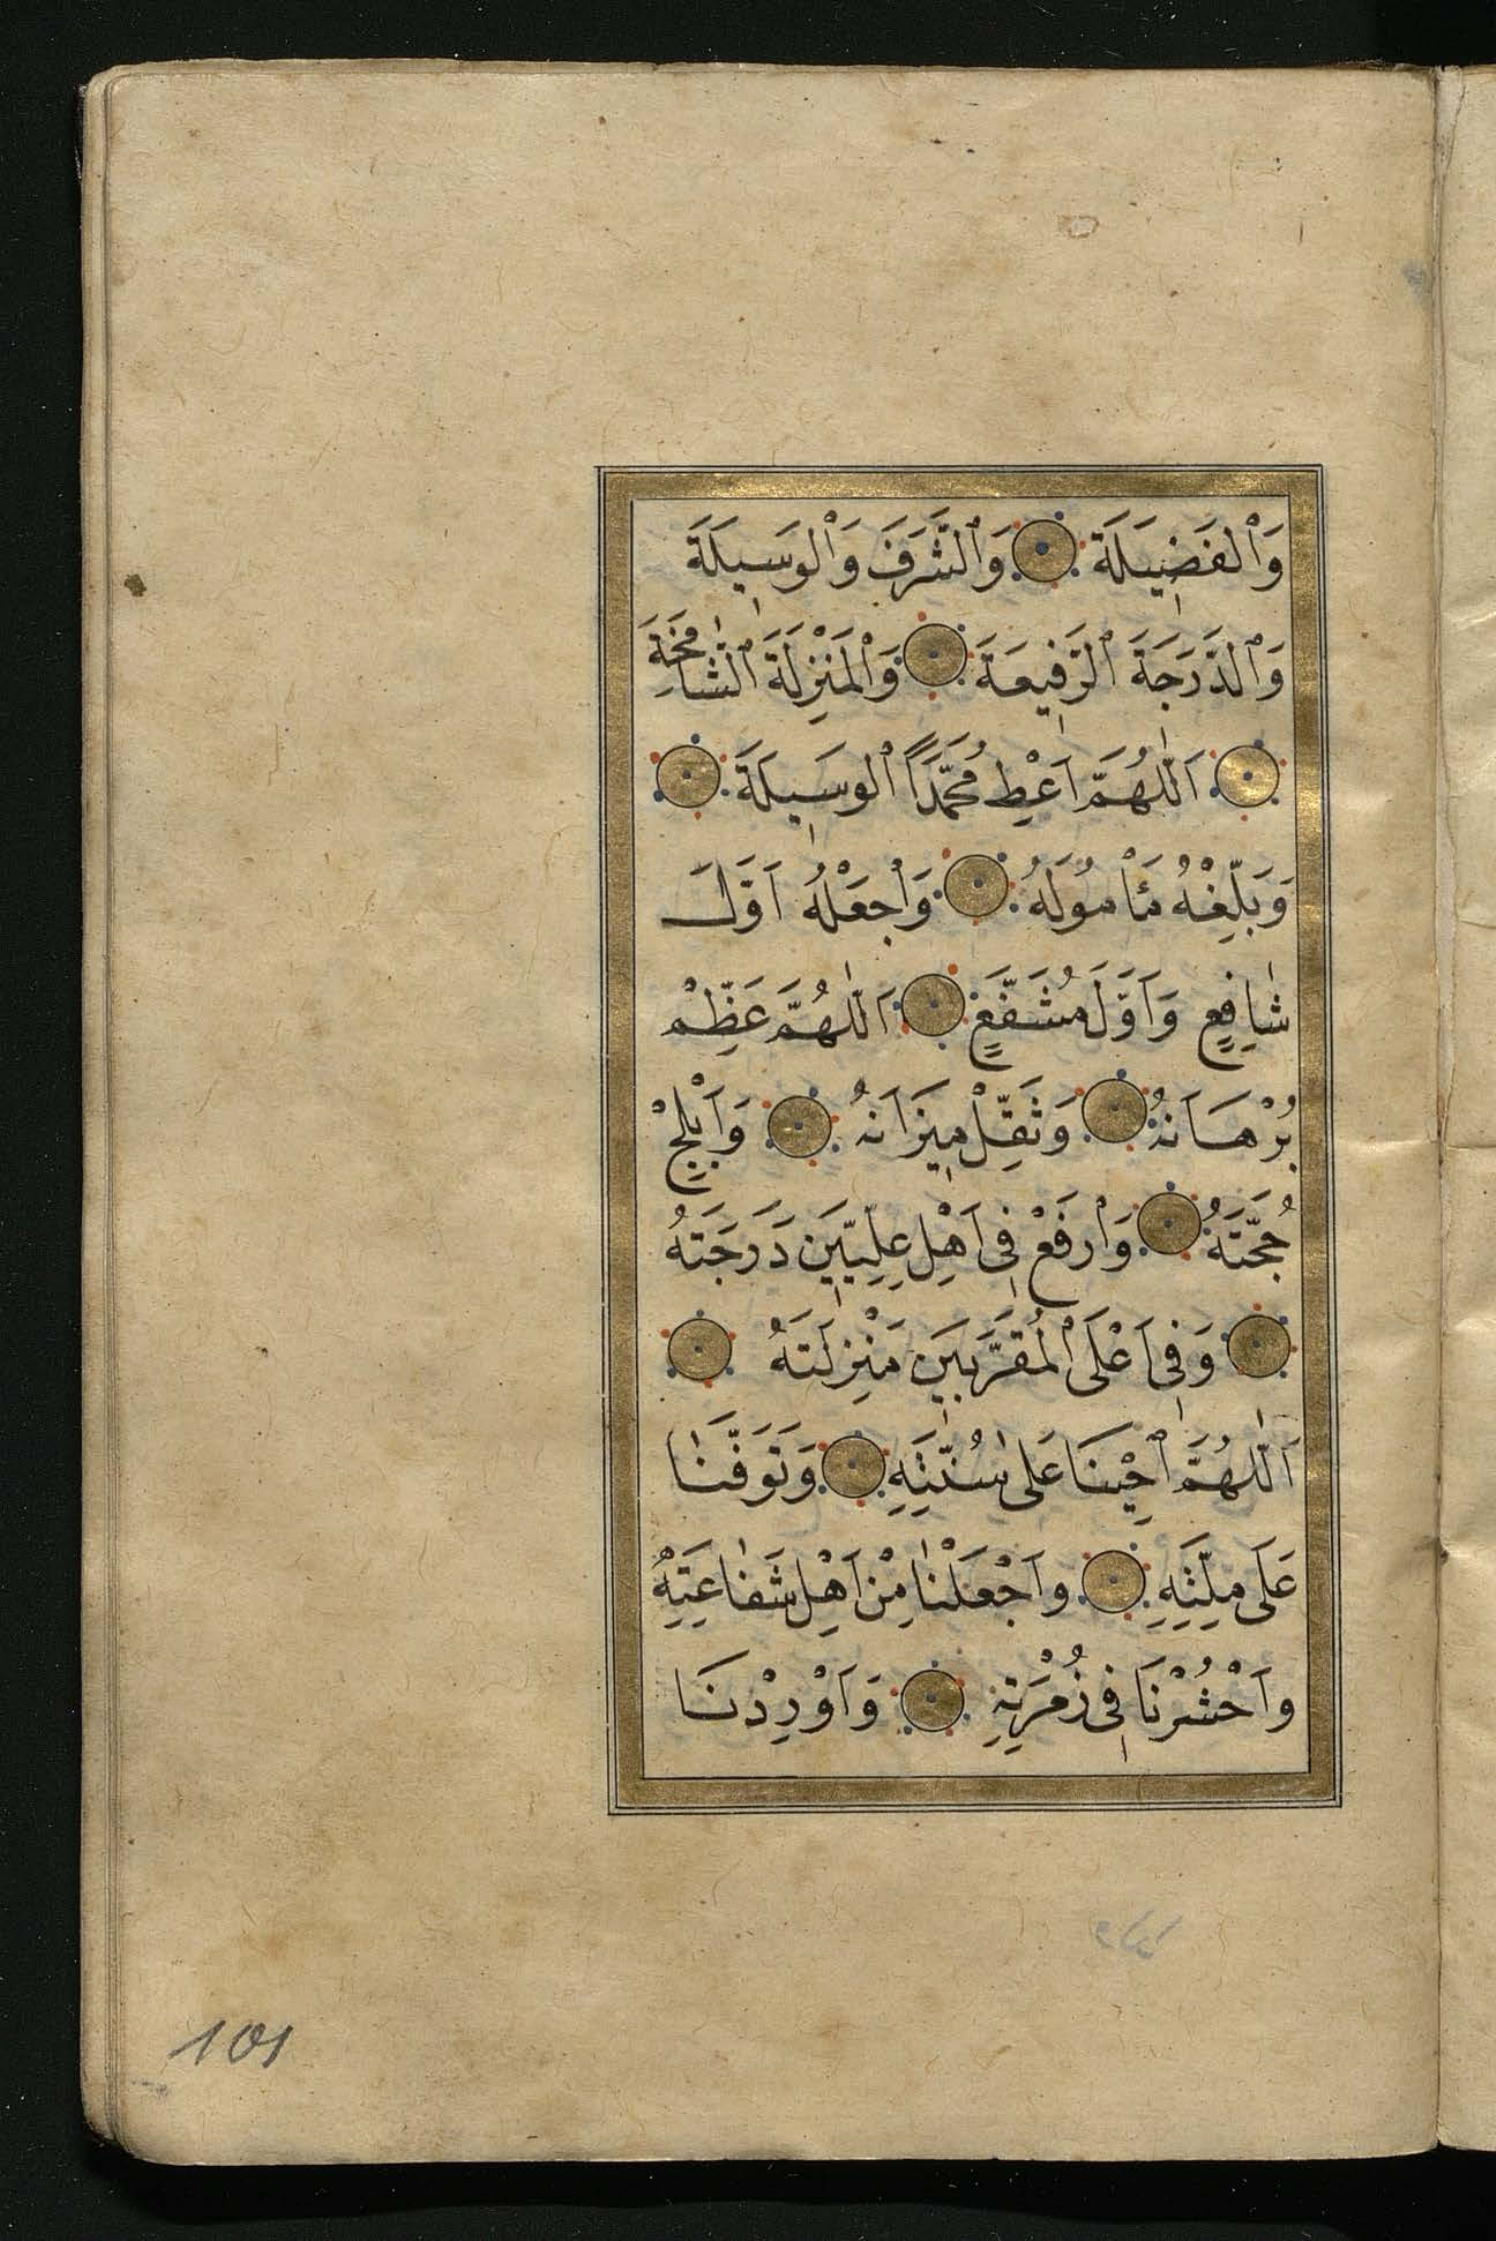 وَالْفَضِيلَةَ وَالشَّرَفَ وَالْوَسِيلَةَ
وَالدَّرَجَةَ الرَّفِيعَةَ وَالْمَنْزِلَةَ الشَّامِخَةَ
اَللّٰهُمَّ اَعْطِ مُحَمَّدًا الْوَسِيلَةَ
وَبَلِّغْهُ مَأْمُولَهُ وَاجْعَلْهُ اَوَّلَ
شَافِعٍ وَاَوَّلَ مُشَفَّعٍ اَللّٰهُمَّ عَظِّمْ
بُرْهَانَهُ وَثَقِّلْ مِيزَانَهُ وَاَبْلِجْ
حُجَّتَهُ وَارْفَعْ فِى اَهْلِ عِلِيّينَ دَرَجَتَهُ
وَفِى اَعْلَى الْمُقَرَّبِينَ مَنْزِلَتَهُ
اَللّٰهُمَّ اَحْيِنَا عَلٰى سُنَّتِهِ وَتَوَفَّنَا
عَلَى مِلَّتِهِ وَاجْعَلْنَا مِنْ اَهْلِ شَفَاعَتِهِ
وَاحْشُرْنَا فِى زُمْرَتِهِ وَاَوْرِدْنَا
101